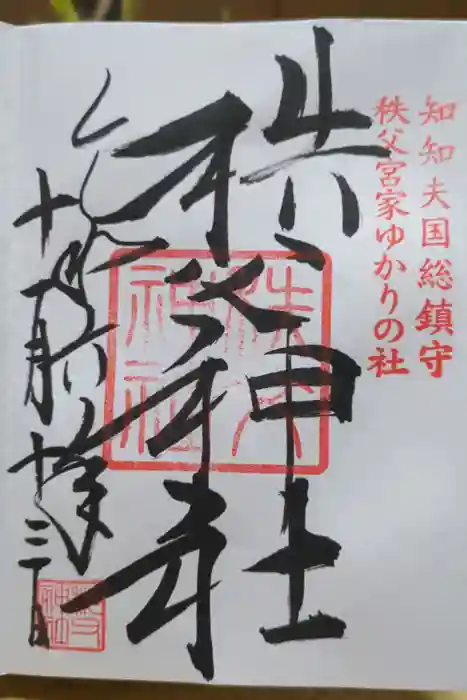 知知夫国総鎮守
秩父宮家ゆかりの社
秩父神社
令和六年
十一月十三日
秩父神社